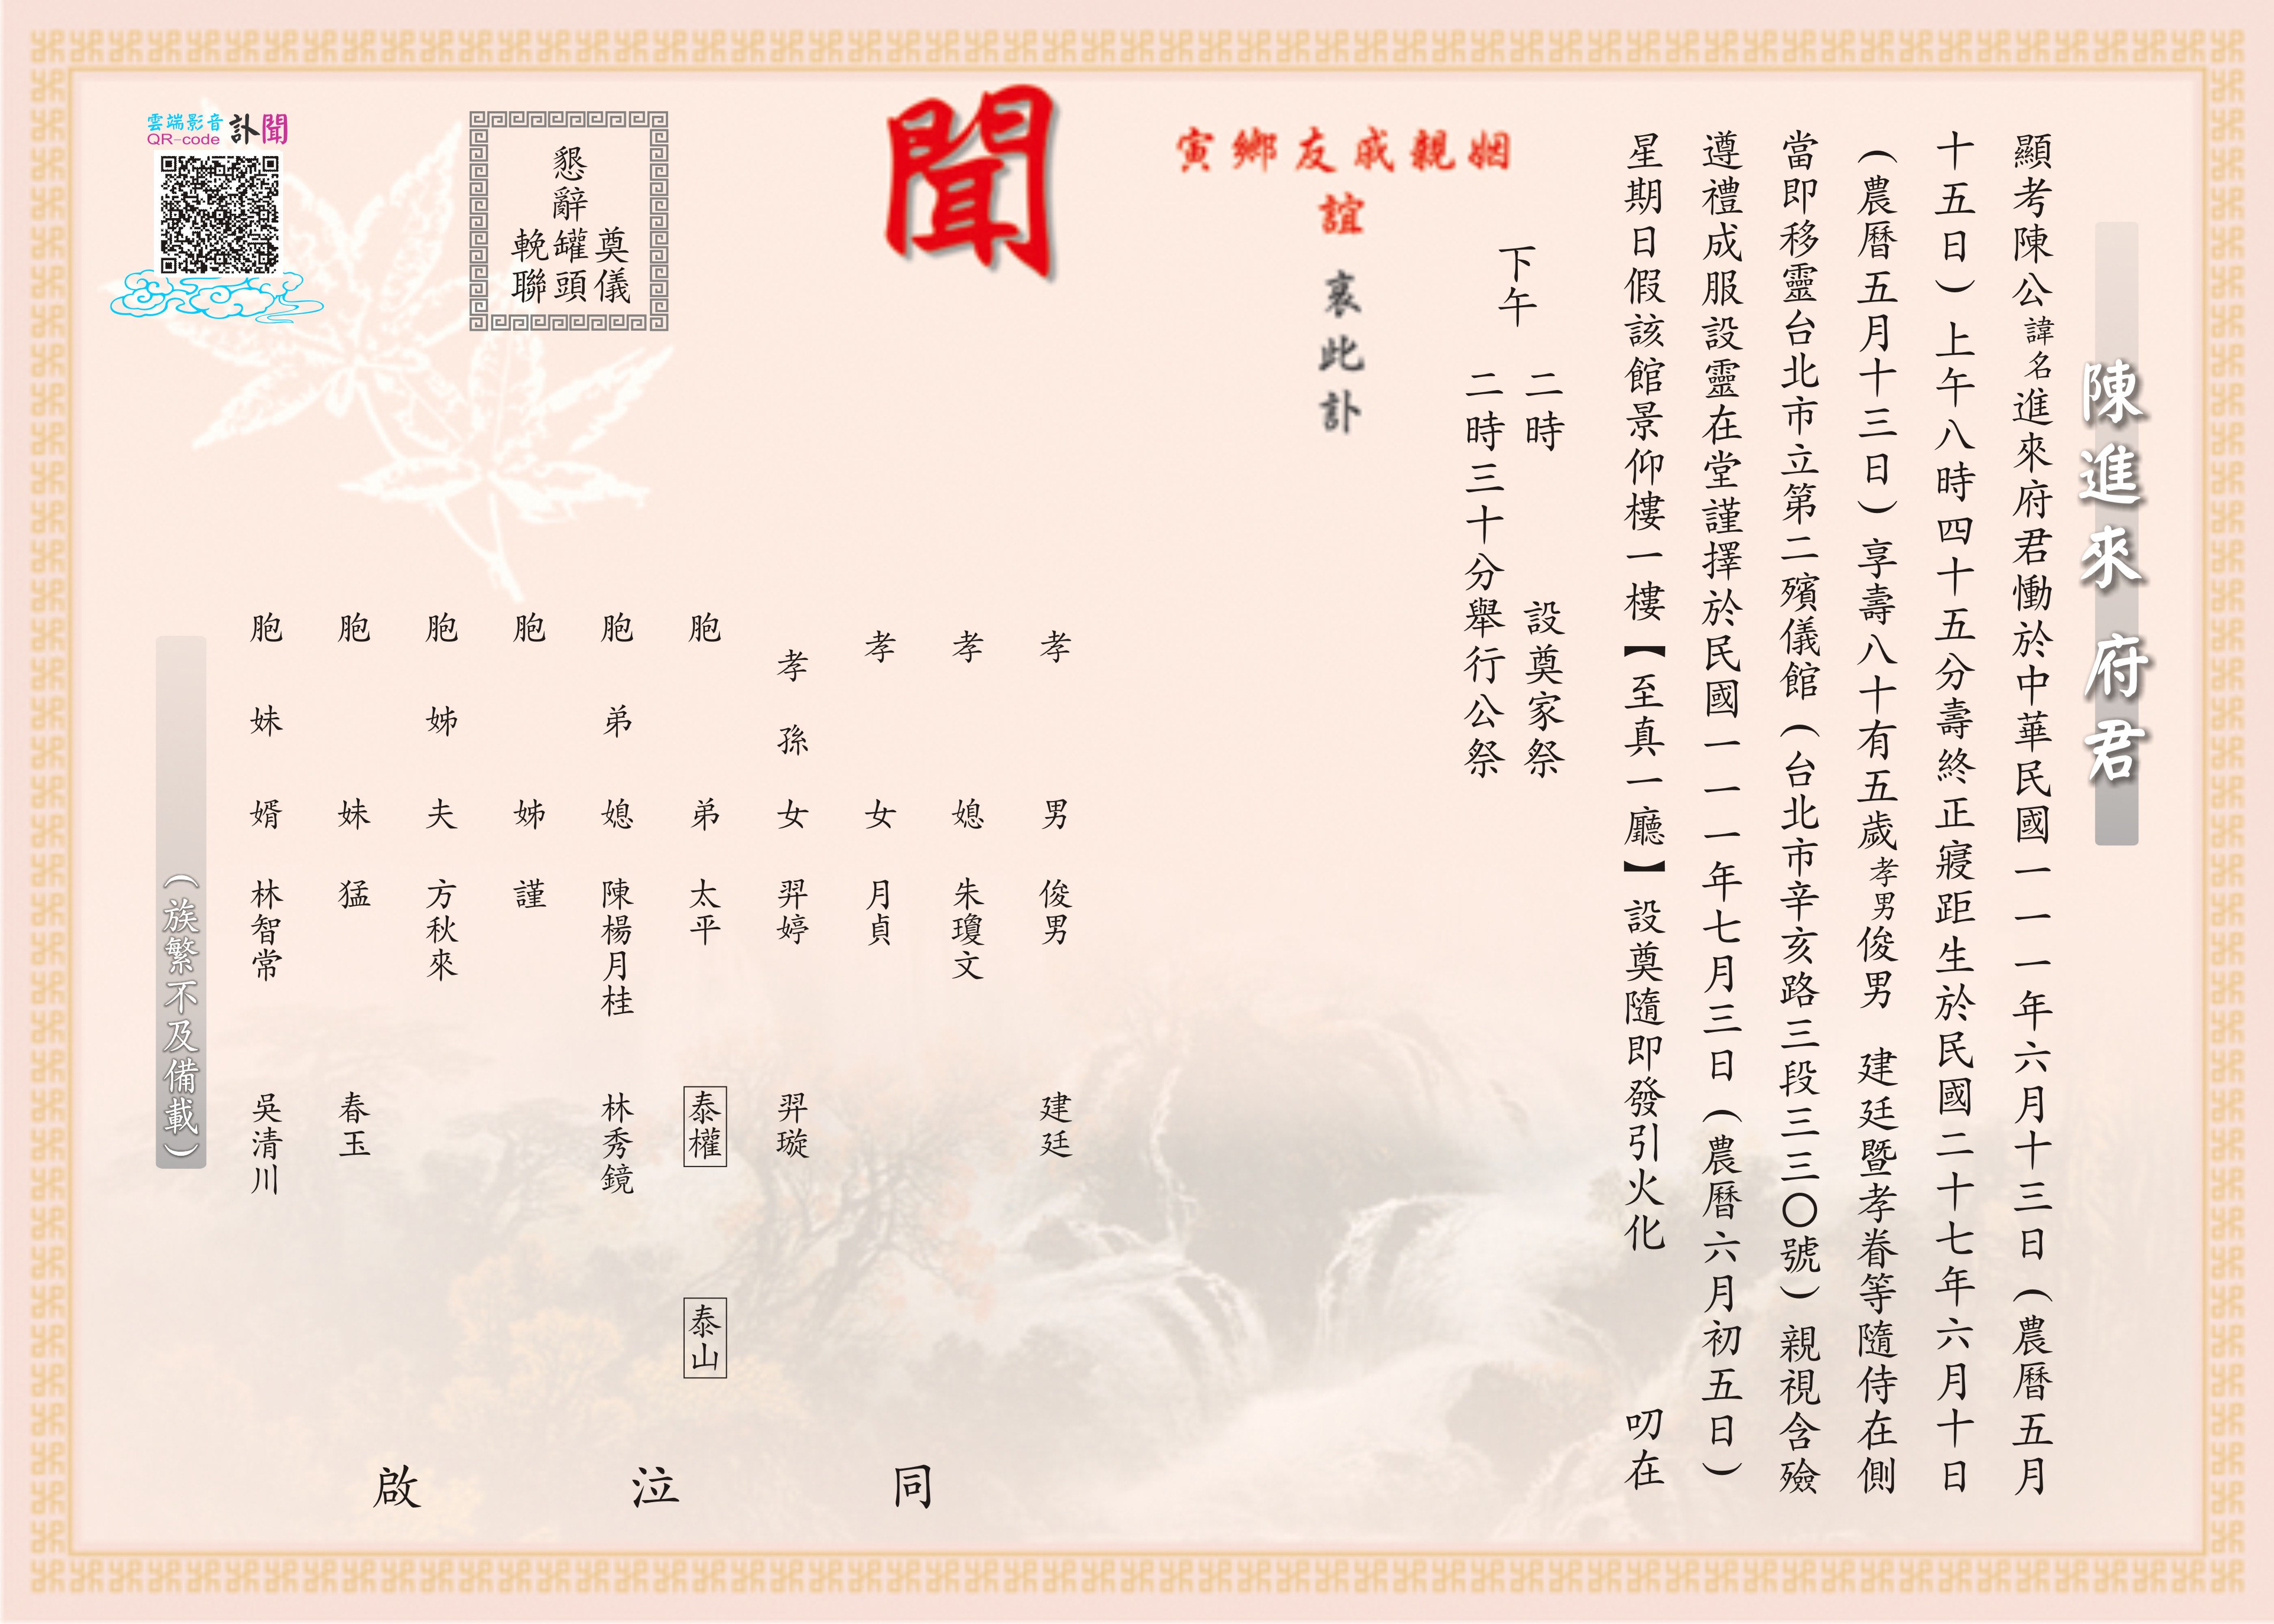 陳進來 府君
顯考陳公諱名進來府君慟於中華民國一一一年六月十三日（農曆五月
十五日）上午八時四十五分壽終正寢距生於民國二十七年六月十日
（農曆五月十三日）享壽八十有五歲孝男俊男 建廷暨孝眷等隨侍在側
當即移靈台北市立第二殯儀館（台北市辛亥路三段三三〇號）親視含殮
遵禮成服設靈在堂謹擇於民國一一一年七月三日（農曆六月初五日）
星期日假該館景仰樓一樓【至真一廳】設奠隨即發引火化 叨在
下午
二時 設奠家祭
二時三十分舉行公祭
寅鄉友戚親姻
誼
哀此訃
聞
孝男 俊男 建廷
孝媳 朱瓊文
孝女 月貞
孝孫女 羿婷 羿璇
胞弟 太平 泰權 泰山
胞弟媳 陳楊月桂 林秀鏡
胞姊 謹
胞姊夫 方秋來
胞妹 猛 春玉
胞妹婿 林智常 吳清川
同泣啟
（族繁不及備載）
懇辭
奠儀
罐頭
輓聯
雲端影音
QR-code
訃聞